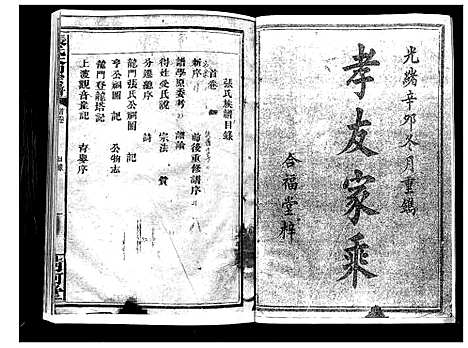 光緒辛卯冬月重鐫
孝友家乘
合福堂梓
張氏族譜目錄
首卷
新序 前後重修譜序
譜學原委考 譜論
得姓受氏說 宗法 贊
分遷源序 詩
龍門張氏公祠圖 記
亨公祠圖 記 公物志
龍門登龍塔記
上波觀音堂記 育嬰序
首卷
目錄